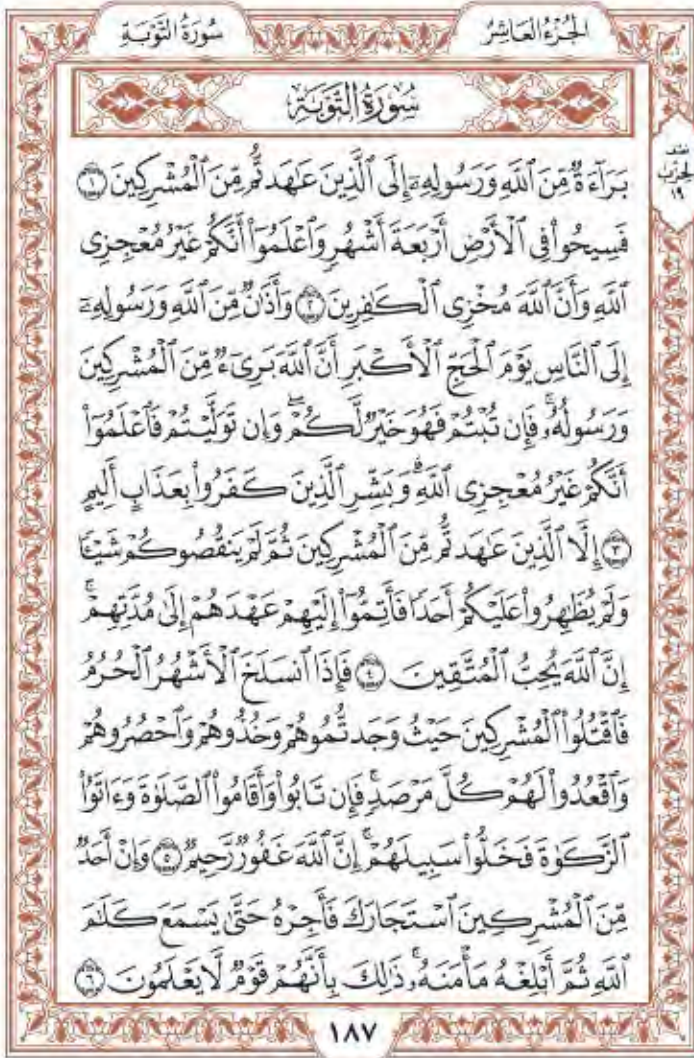 سُورَةُ التَّوْبَةِ
الجُزْءُ العَاشِرُ
سُورَةُ التَّوْبَةِ
نصف
الحزب
١٩
بَرَآءَةٌ مِّنَ ٱللَّهِ وَرَسُولِهِۦٓ إِلَى ٱلَّذِينَ عَـٰهَدتُّم مِّنَ ٱلْمُشْرِكِينَ ١
فَسِيحُوا۟ فِى ٱلْأَرْضِ أَرْبَعَةَ أَشْهُرٍ وَٱعْلَمُوٓا۟ أَنَّكُمْ غَيْرُ مُعْجِزِى
ٱللَّهِ وَأَنَّ ٱللَّهَ مُخْزِى ٱلْكَـٰفِرِينَ ٢ وَأَذَٰنٌ مِّنَ ٱللَّهِ وَرَسُولِهِۦٓ
إِلَى ٱلنَّاسِ يَوْمَ ٱلْحَجِّ ٱلْأَكْبَرِ أَنَّ ٱللَّهَ بَرِىٓءٌ مِّنَ ٱلْمُشْرِكِينَ
وَرَسُولُهُۥ ۚ فَإِن تُبْتُمْ فَهُوَ خَيْرٌ لَّكُمْ ۖ وَإِن تَوَلَّيْتُمْ فَٱعْلَمُوٓا۟
أَنَّكُمْ غَيْرُ مُعْجِزِى ٱللَّهِ ۗ وَبَشِّرِ ٱلَّذِينَ كَفَرُوا۟ بِعَذَابٍ أَلِيمٍ
٣ إِلَّا ٱلَّذِينَ عَـٰهَدتُّم مِّنَ ٱلْمُشْرِكِينَ ثُمَّ لَمْ يَنقُصُوكُمْ شَيْـًٔا
وَلَمْ يُظَـٰهِرُوا۟ عَلَيْكُمْ أَحَدًا فَأَتِمُّوٓا۟ إِلَيْهِمْ عَهْدَهُمْ إِلَىٰ مُدَّتِهِمْ ۚ
إِنَّ ٱللَّهَ يُحِبُّ ٱلْمُتَّقِينَ ٤ فَإِذَا ٱنسَلَخَ ٱلْأَشْهُرُ ٱلْحُرُمُ
فَٱقْتُلُوا۟ ٱلْمُشْرِكِينَ حَيْثُ وَجَدتُّمُوهُمْ وَخُذُوهُمْ وَٱحْصُرُوهُمْ
وَٱقْعُدُوا۟ لَهُمْ كُلَّ مَرْصَدٍ ۚ فَإِن تَابُوا۟ وَأَقَامُوا۟ ٱلصَّلَوٰةَ وَءَاتَوُا۟
ٱلزَّكَوٰةَ فَخَلُّوا۟ سَبِيلَهُمْ ۚ إِنَّ ٱللَّهَ غَفُورٌ رَّحِيمٌ ٥ وَإِنْ أَحَدٌ
مِّنَ ٱلْمُشْرِكِينَ ٱسْتَجَارَكَ فَأَجِرْهُ حَتَّىٰ يَسْمَعَ كَلَـٰمَ
ٱللَّهِ ثُمَّ أَبْلِغْهُ مَأْمَنَهُۥ ۚ ذَٰلِكَ بِأَنَّهُمْ قَوْمٌ لَّا يَعْلَمُونَ ٦
١٨٧